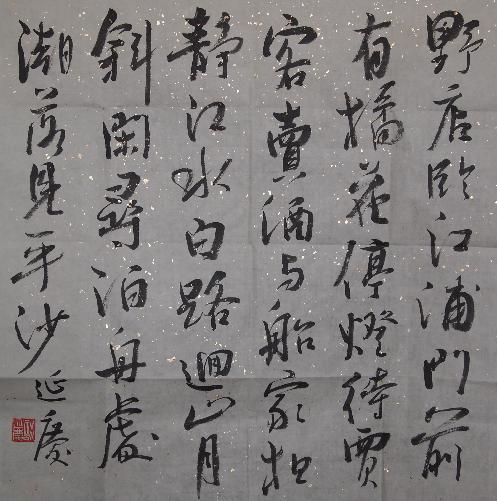 野店臨江浦門前
有橘花停燈待賈
客賣酒与船家
靜江水白路迴山月
斜閑尋泊舟處
潮落見平沙
延慶